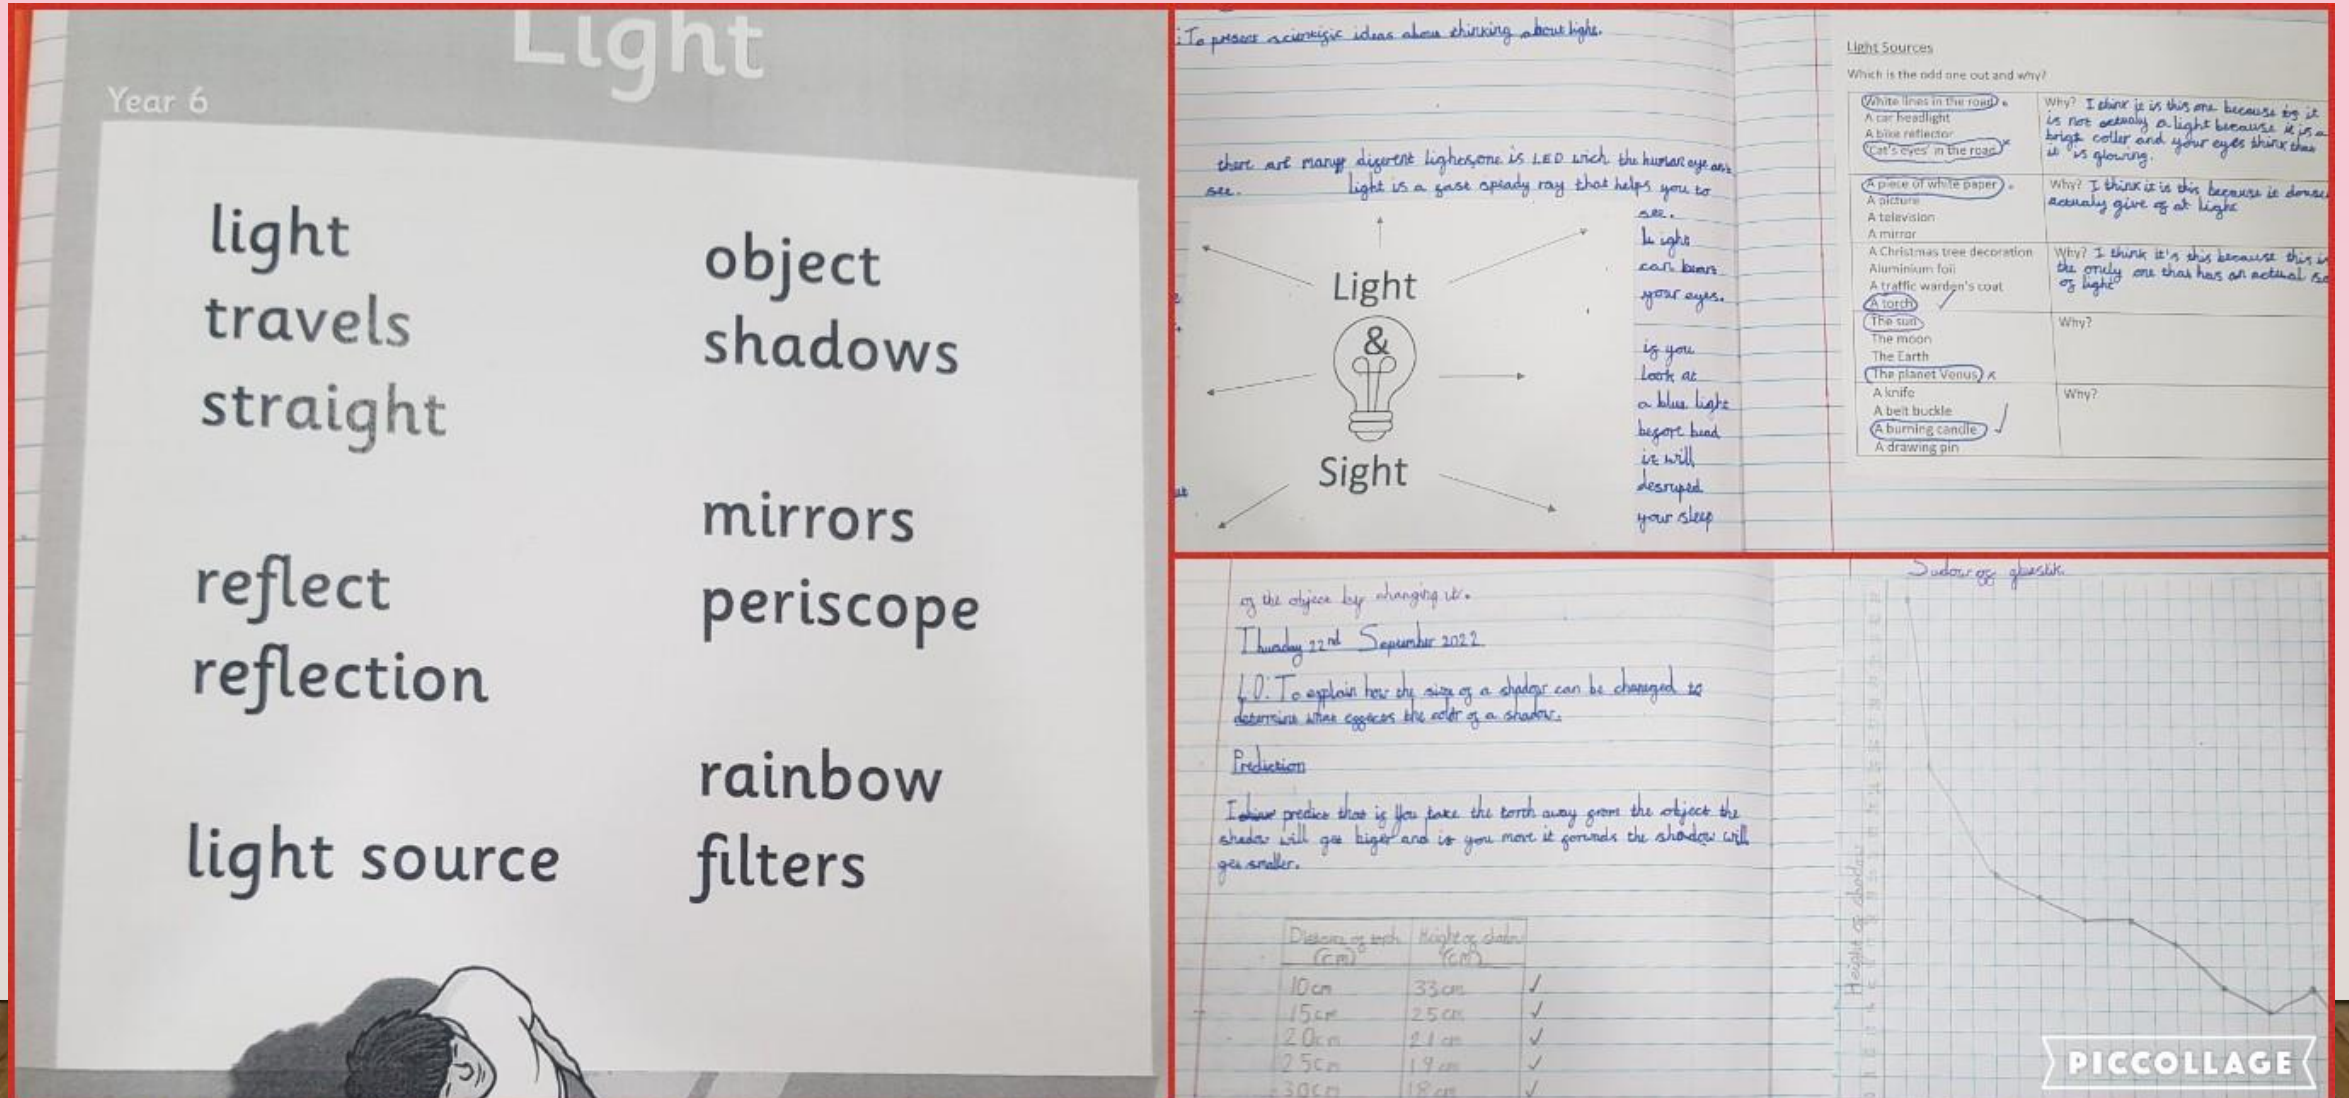 Light
Year 6
light
travels
straight
reflect
reflection
light source
object
shadows
mirrors
periscope
rainbow
filters
: To present scientific ideas about thinking about light.
there are many diferent lights, one is LED wich the human eye can
see.
light is a fast speady ray that helps you to
see.
light
can burn
your eyes.
if you
look at
a blue light
before bead
it will
desruped
your sleep
Light
&
Sight
Light Sources
Which is the odd one out and why?
White lines in the road
A car headlight
A bike reflector
'Cat's eyes' in the road
Why? I think it is this one because it
is not actualy a light because it is a
brigt coller and your eyes think that
it is glowing.
A piece of white paper
A picture
A television
A mirror
Why? I think it is this because it
actualy give of at light
A Christmas tree decoration
Aluminium foil
A traffic warden's coat
A torch
Why? I think it's this because this is
the onely one that has an actual
of light
The sun
The moon
The Earth
The planet Venus
Why?
A knife
A belt buckle
A burning candle
A drawing pin
Why?
of the object by changing it.
Thursday 22nd September 2022
L.O: To explain how the size of a shadow can be changed to
determine what effects the of a shadow.
Prediction
I predict that if you take the torch away from the object the
shadow will get biger and if you move it forwards the shadow will
get smaller.
Distance of torch (cm) Height of shadow (cm)
10cm 33cm
15cm 25cm
20cm 21cm
25cm 19cm
30cm 18cm
Height of shadow
PICCOLLAGE